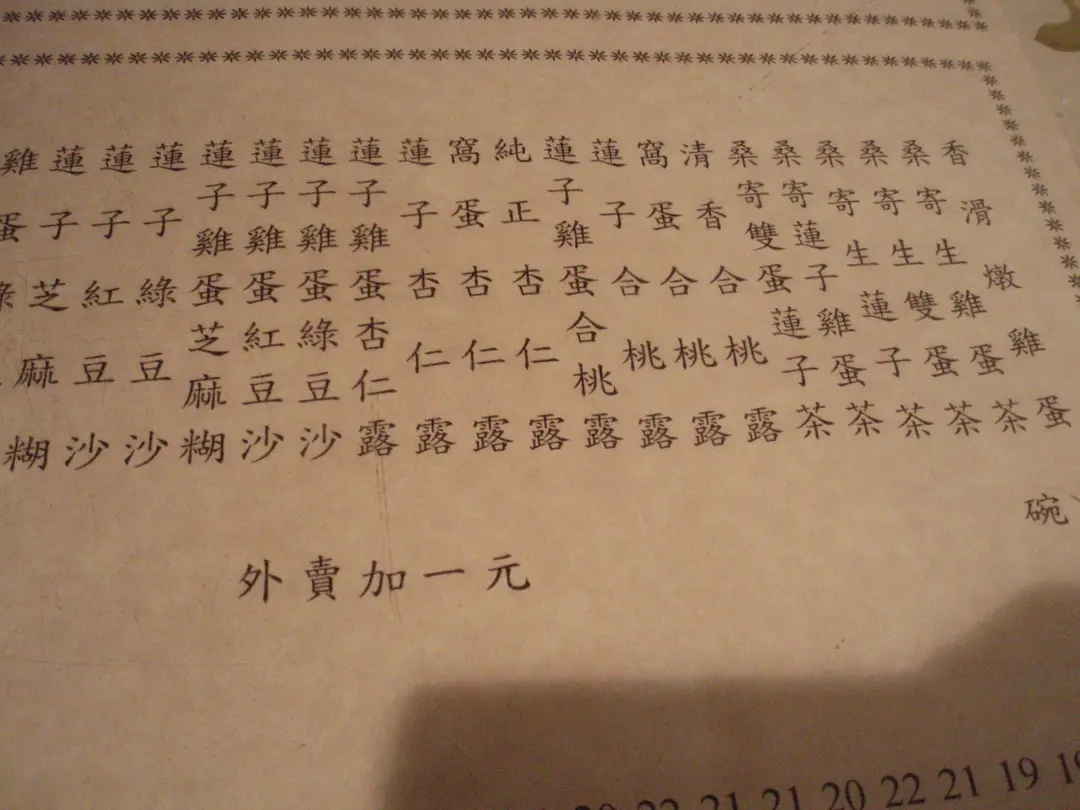 香滑燉雞蛋
桑寄生雞蛋茶
桑寄生雙蛋茶
桑寄生蓮子茶
桑寄蓮子雞蛋茶
桑寄雙蛋蓮子茶
清香合桃露
窩蛋合桃露
蓮子合桃露
蓮子雞蛋合桃露
純正杏仁露
窩蛋杏仁露
蓮子杏仁露
蓮子雞蛋杏仁露
蓮子雞蛋綠豆沙
蓮子雞蛋紅豆沙
蓮子雞蛋芝麻糊
蓮子綠豆沙
蓮子紅豆沙
蓮子芝麻糊
雞蛋綠
碗
外賣加一元
22 21 21 20 22 21 19 19